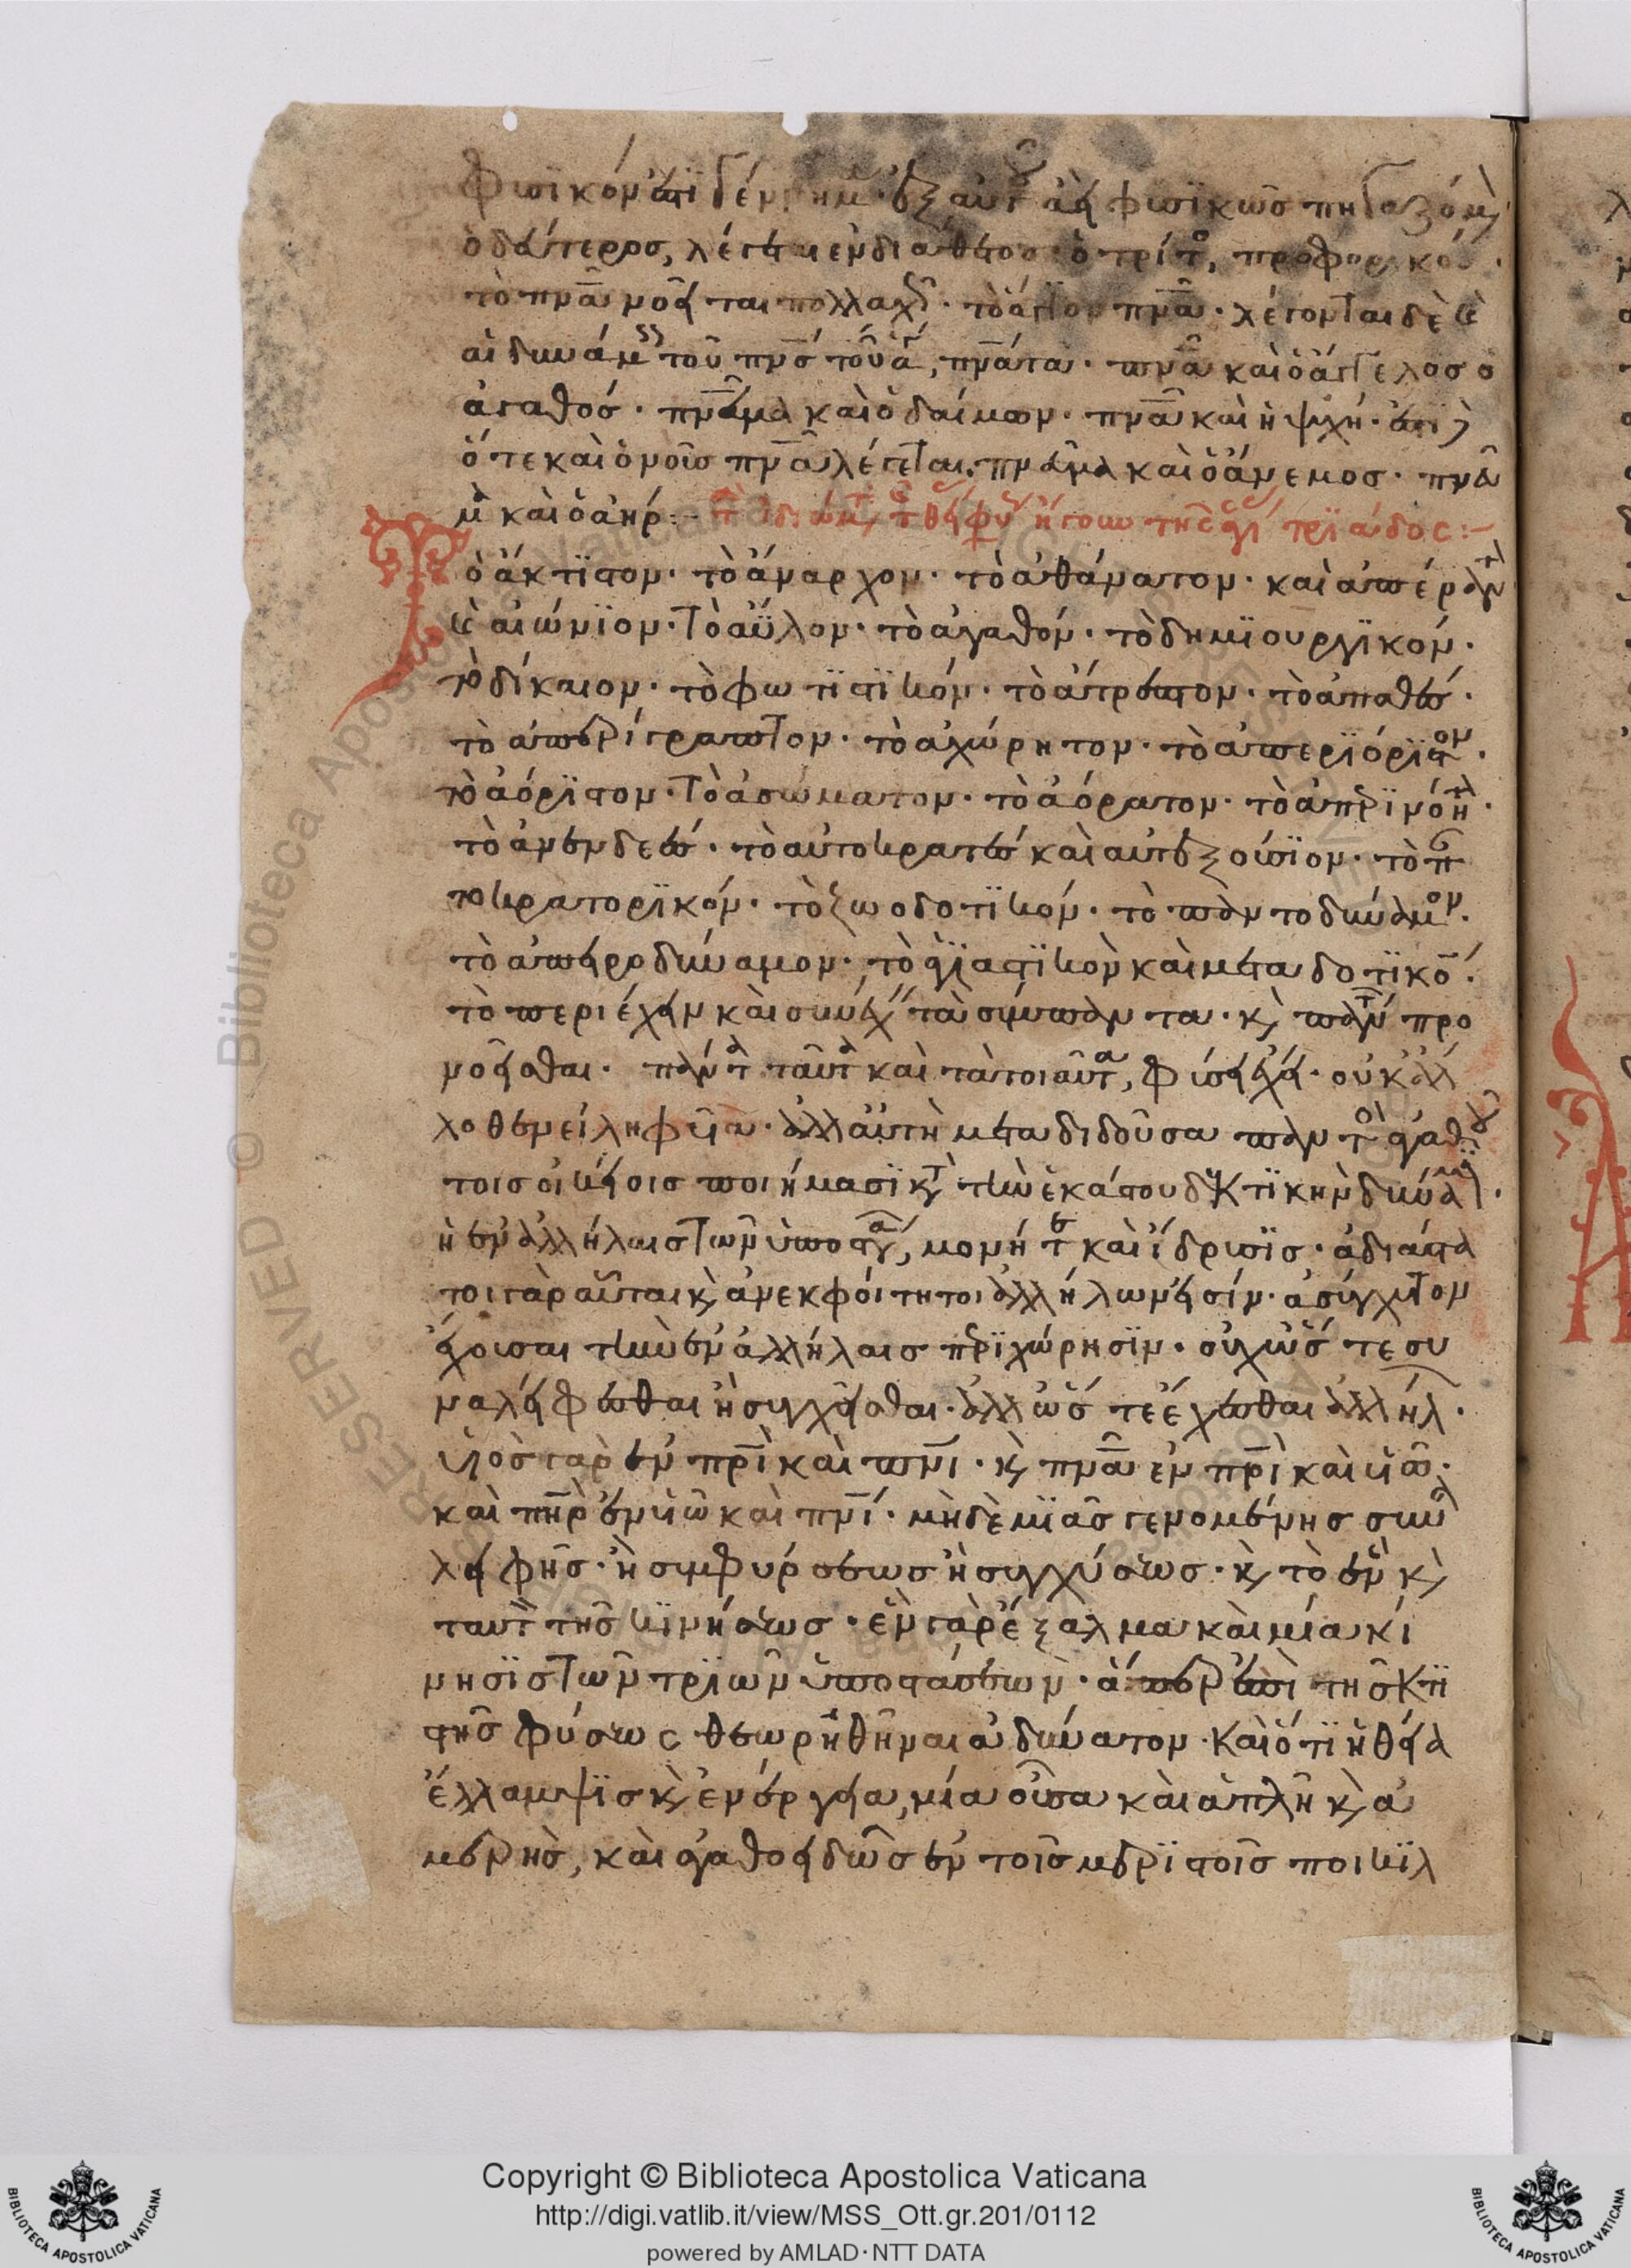 φυσικόν ἐστι γέννημα ἐξ αὐτοῦ ἀεὶ φυσικῶς πηγαζόμενον
ὁ δεύτερος, λέγεται ἐνδιάθετος· ὁ τρίτος, προφορικός·
τὸ πνᾶ νοεῖται πολλαχῶς· τὸ ἅγιον πνᾶ· λέγονται δὲ καὶ
αἱ δυνάμεις τοῦ πνς τοῦ ἁγίου, πνατα· πνᾶ καὶ ὁ ἄγγελος ὁ
ἀγαθός· πνεῦμα καὶ ὁ δαίμων· πνᾶ καὶ ἡ ψυχή· ἔστι δὲ
ὅτε καὶ ὁ νοῦς πνᾶ λέγεται· πνεῦμα καὶ ὁ ἄνεμος· πνεῦ
μα καὶ ὁ ἀήρ:- περὶ ἰδιωμάτων τῆς θείας φύσεως ἤγουν τῆς ἁγίας τριάδος:-
Τὸ ἄκτιστον· τὸ ἄναρχον· τὸ ἀθάνατον· καὶ ἀπέραντον
καὶ αἰώνιον· τὸ ἄϋλον· τὸ ἀγαθόν· τὸ δημιουργικόν·
τὸ δίκαιον· τὸ φωτιστικόν· τὸ ἄτρεπτον· τὸ ἀπαθές·
τὸ ἀπερίγραπτον· τὸ ἀχώρητον· τὸ ἀπεριόριστον·
τὸ ἀόριστον· τὸ ἀσώματον· τὸ ἀόρατον· τὸ ἀπερινόητον·
τὸ ἀνενδεές· τὸ αὐτοκρατές καὶ αὐτεξούσιον· τὸ παν
τοκρατορικόν· τὸ ζωοδοτικόν· τὸ παντοδύναμον·
τὸ ἀπειροδύναμον· τὸ ἁγιαστικὸν καὶ μεταδοτικόν·
τὸ περιέχειν καὶ συνέχειν τὰ σύμπαντα· καὶ πάντων προ
νοεῖσθαι· πάντα ταῦτα καὶ τὰ τοιαῦτα, φύσει ἔχει· οὐκ ἀλ
λοθεν εἰληφυῖα· ἀλλ αὐτὴ μεταδιδοῦσα παντὸς ἀγαθοῦ
τοῖς οἰκείοις ποιήμασι κατὰ τὴν ἑκάστου δεκτικὴν δύναμιν·
ἡ ἐν ἀλλήλαις τῶν ὑποστάσεων, μονή τε καὶ ἵδρυσις· ἀδιάστα
τοι γὰρ αὗται καὶ ἀνεκφοίτητοι ἀλλήλων εἰσίν· ἀσύγχυτον
ἔχουσαι τὴν ἐν ἀλλήλαις περιχώρησιν· οὐχ ὥς τε συ
ναλείφεσθαι ἢ συγχεῖσθαι· ἀλλ ὥς τε ἔχεσθαι ἀλλήλων·
υἱὸς γὰρ ἐν πρὶ καὶ πνι· καὶ πνᾶ ἐν πρὶ καὶ υἱῶ·
καὶ πὴρ ἐν υἱῶ καὶ πνι· μηδεμιᾶς γενομένης συνα
λειφῆς· ἢ συμφύρσεως ἢ συγχύσεως· καὶ τὸ ἓν καὶ
ταυτὸν τῆς κινήσεως· ἓν γὰρ ἔξαλμα καὶ μία κί
νησις τῶν τριῶν ὑποστάσεων· ἅπερ ἐπὶ τῆς κτι
στῆς φύσεως θεωρηθῆναι ἀδύνατον· καὶ ὅτι ἡ θεία
ἔλλαμψις καὶ ἐνέργεια, μία οὖσα καὶ ἁπλῆ καὶ ἀ
μερὴς, καὶ ἀγαθοειδῶς ἐν τοῖς μεριστοῖς ποικιλ
Copyright © Biblioteca Apostolica Vaticana
http://digi.vatlib.it/view/MSS_Ott.gr.201/0112
powered by AMLAD·NTT DATA
BIBLIOTECA APOSTOLICA VATICANA
BIBLIOTECA APOSTOLICA VATICANA